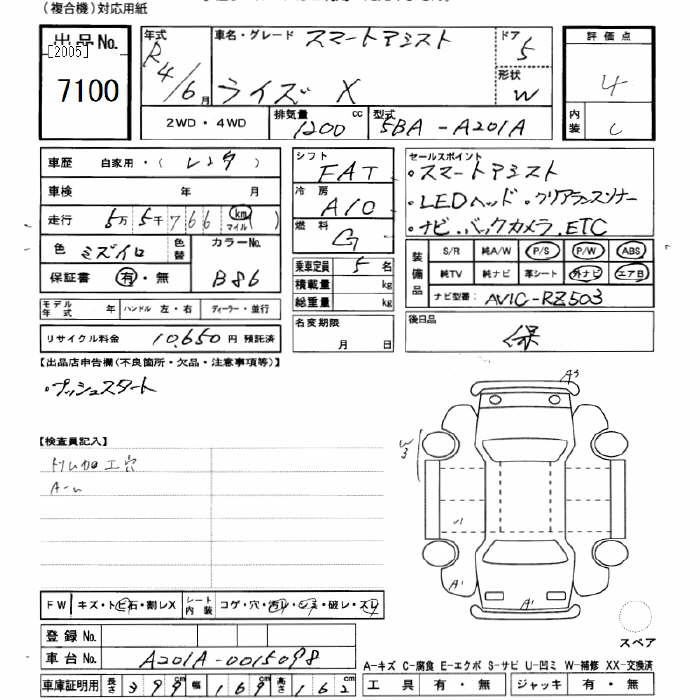 (複合機)対応用紙
出品No. [2005] 7100
年式 R4/6月
車名・グレード スマートアシスト
ライズ X
ドア 5
形状 W
2WD・4WD
排気量 1200 cc
型式 5BA-A201A
評価点 4
内装 C
車歴 自家用・(レンタ)
車検 年 月
走行 5万5千766 km マイル ( )
色 ミズイロ 色替 カラーNo. B86
保証書 有・無
モデル年式 年 ハンドル 左・右 ディーラー・並行
リサイクル料金 10,650 円 預託済
シフト FAT
冷房 A/C
燃料 G
乗車定員 5 名
積載量 kg
総重量 kg
名変期限
月 日
セールスポイント
・スマートアシスト
・LEDヘッド・クリアランスソナー
・ナビ.バックカメラ.ETC
装備品 S/R 純A/W P/S P/W ABS
純TV 純ナビ 革シート 外ナビ エアB
ナビ型番: AVIC-RZ503
後日品
保
【出品店申告欄(不良箇所・欠品・注意事項等)】
・プッシュスタート
【検査員記入】
トリム加工穴
A-
A3
W3
A1
A1
FW キズ・トビ石・割レX シート内装 コゲ・穴・汚レ・シミ・破レ・スレ
登録No.
車台No. A201A-0015098
車庫証明用 長さ 399 幅 169 高さ 162
スペア
A-キズ C-腐食 E-エクボ S-サビ U-凹ミ W-補修 XX-交換済
工具 有・無 ジャッキ 有・無